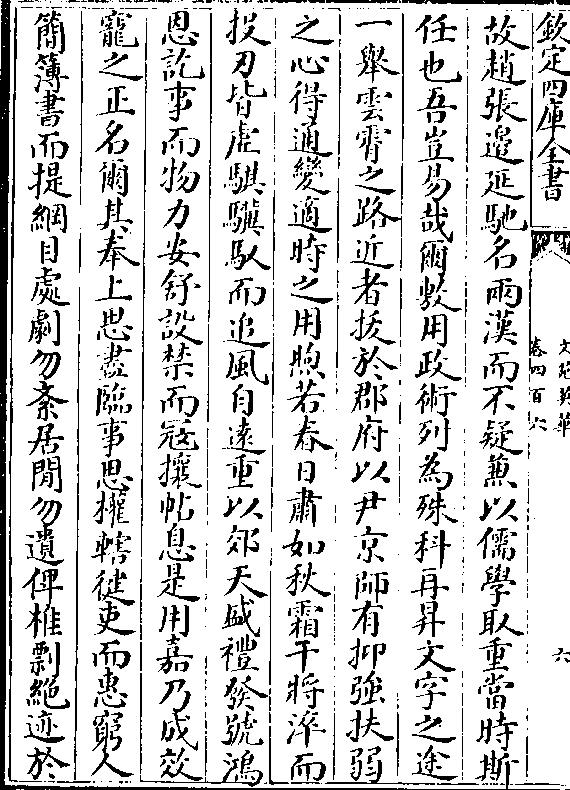 欽定四庫全書
文苑英華
卷四百六
六
故趙張邊延馳名兩漢而不疑兼以儒學取重當時斯
任也吾豈易哉爾敷用政術列為殊科再昇文字之途
一舉雲霄之路近者按於郡府以尹京師有抑強扶弱
之心得通變適時之用煦若春日肅如秋霜干將淬而
投刃皆虛騏驥馭而追風自遠重以郊天盛禮發號鴻
恩訖事而物力安舒設禁而寇攘帖息是用嘉乃成效
寵之正名爾其奉上思盡臨事思權轄徤吏而惠窮人
簡簿書而提綱目處劇勿紊居閒勿遺俾椎剽絕迹於